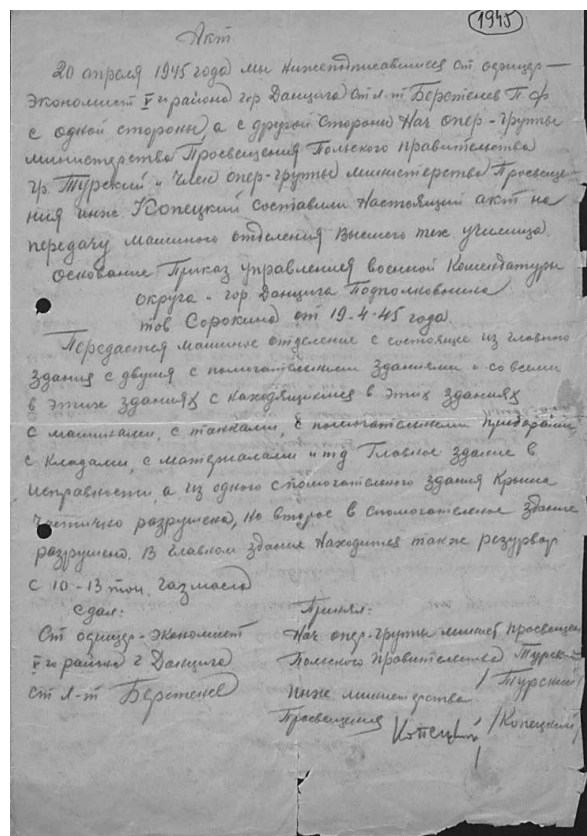 1945
Акт
20 апреля 1945 года мы нижеподписавшиеся ст офицер-
экономист V го района гор Данцига ст л-т Берстенев П Ф
с одной стороны, а с другой стороны Нач опер-группы
министерства Просвещения Польского правительства
гр. Турский и член опер-группы министерства Просвеще-
ния инж. Копецкий составили настоящий акт на
передачу машиного отделения Высшего тех училища.
Основание: Приказ управления военной Комендатуры
округа и гор. Данцига Подполковника
тов Сорокина от 19-4-45 года.
Передается машиное отделение с состоящее из главного
здания с двумя с помогательными зданиями и со всеми
в этих зданиях с находящимися в этих зданиях
с машинами, с танками, с помогательными приборами
с кладами, с материалами и тд Главное здание в
исправности, а из одного спомогательного здания крыша
частично разрушена, но второе в спомогательное здание
разрушено. В главном здание находится также резурвар
с 10-13 тон. газмасла
Сдал:
Ст офицер-экономист
V го района г Данцига
ст л-т Берстенев
Принял:
Нач опер-группы минист просвещен
Польского правительства Турск
/Турский/
Инже министерства
Просвещения Копецкий /Копецкий/